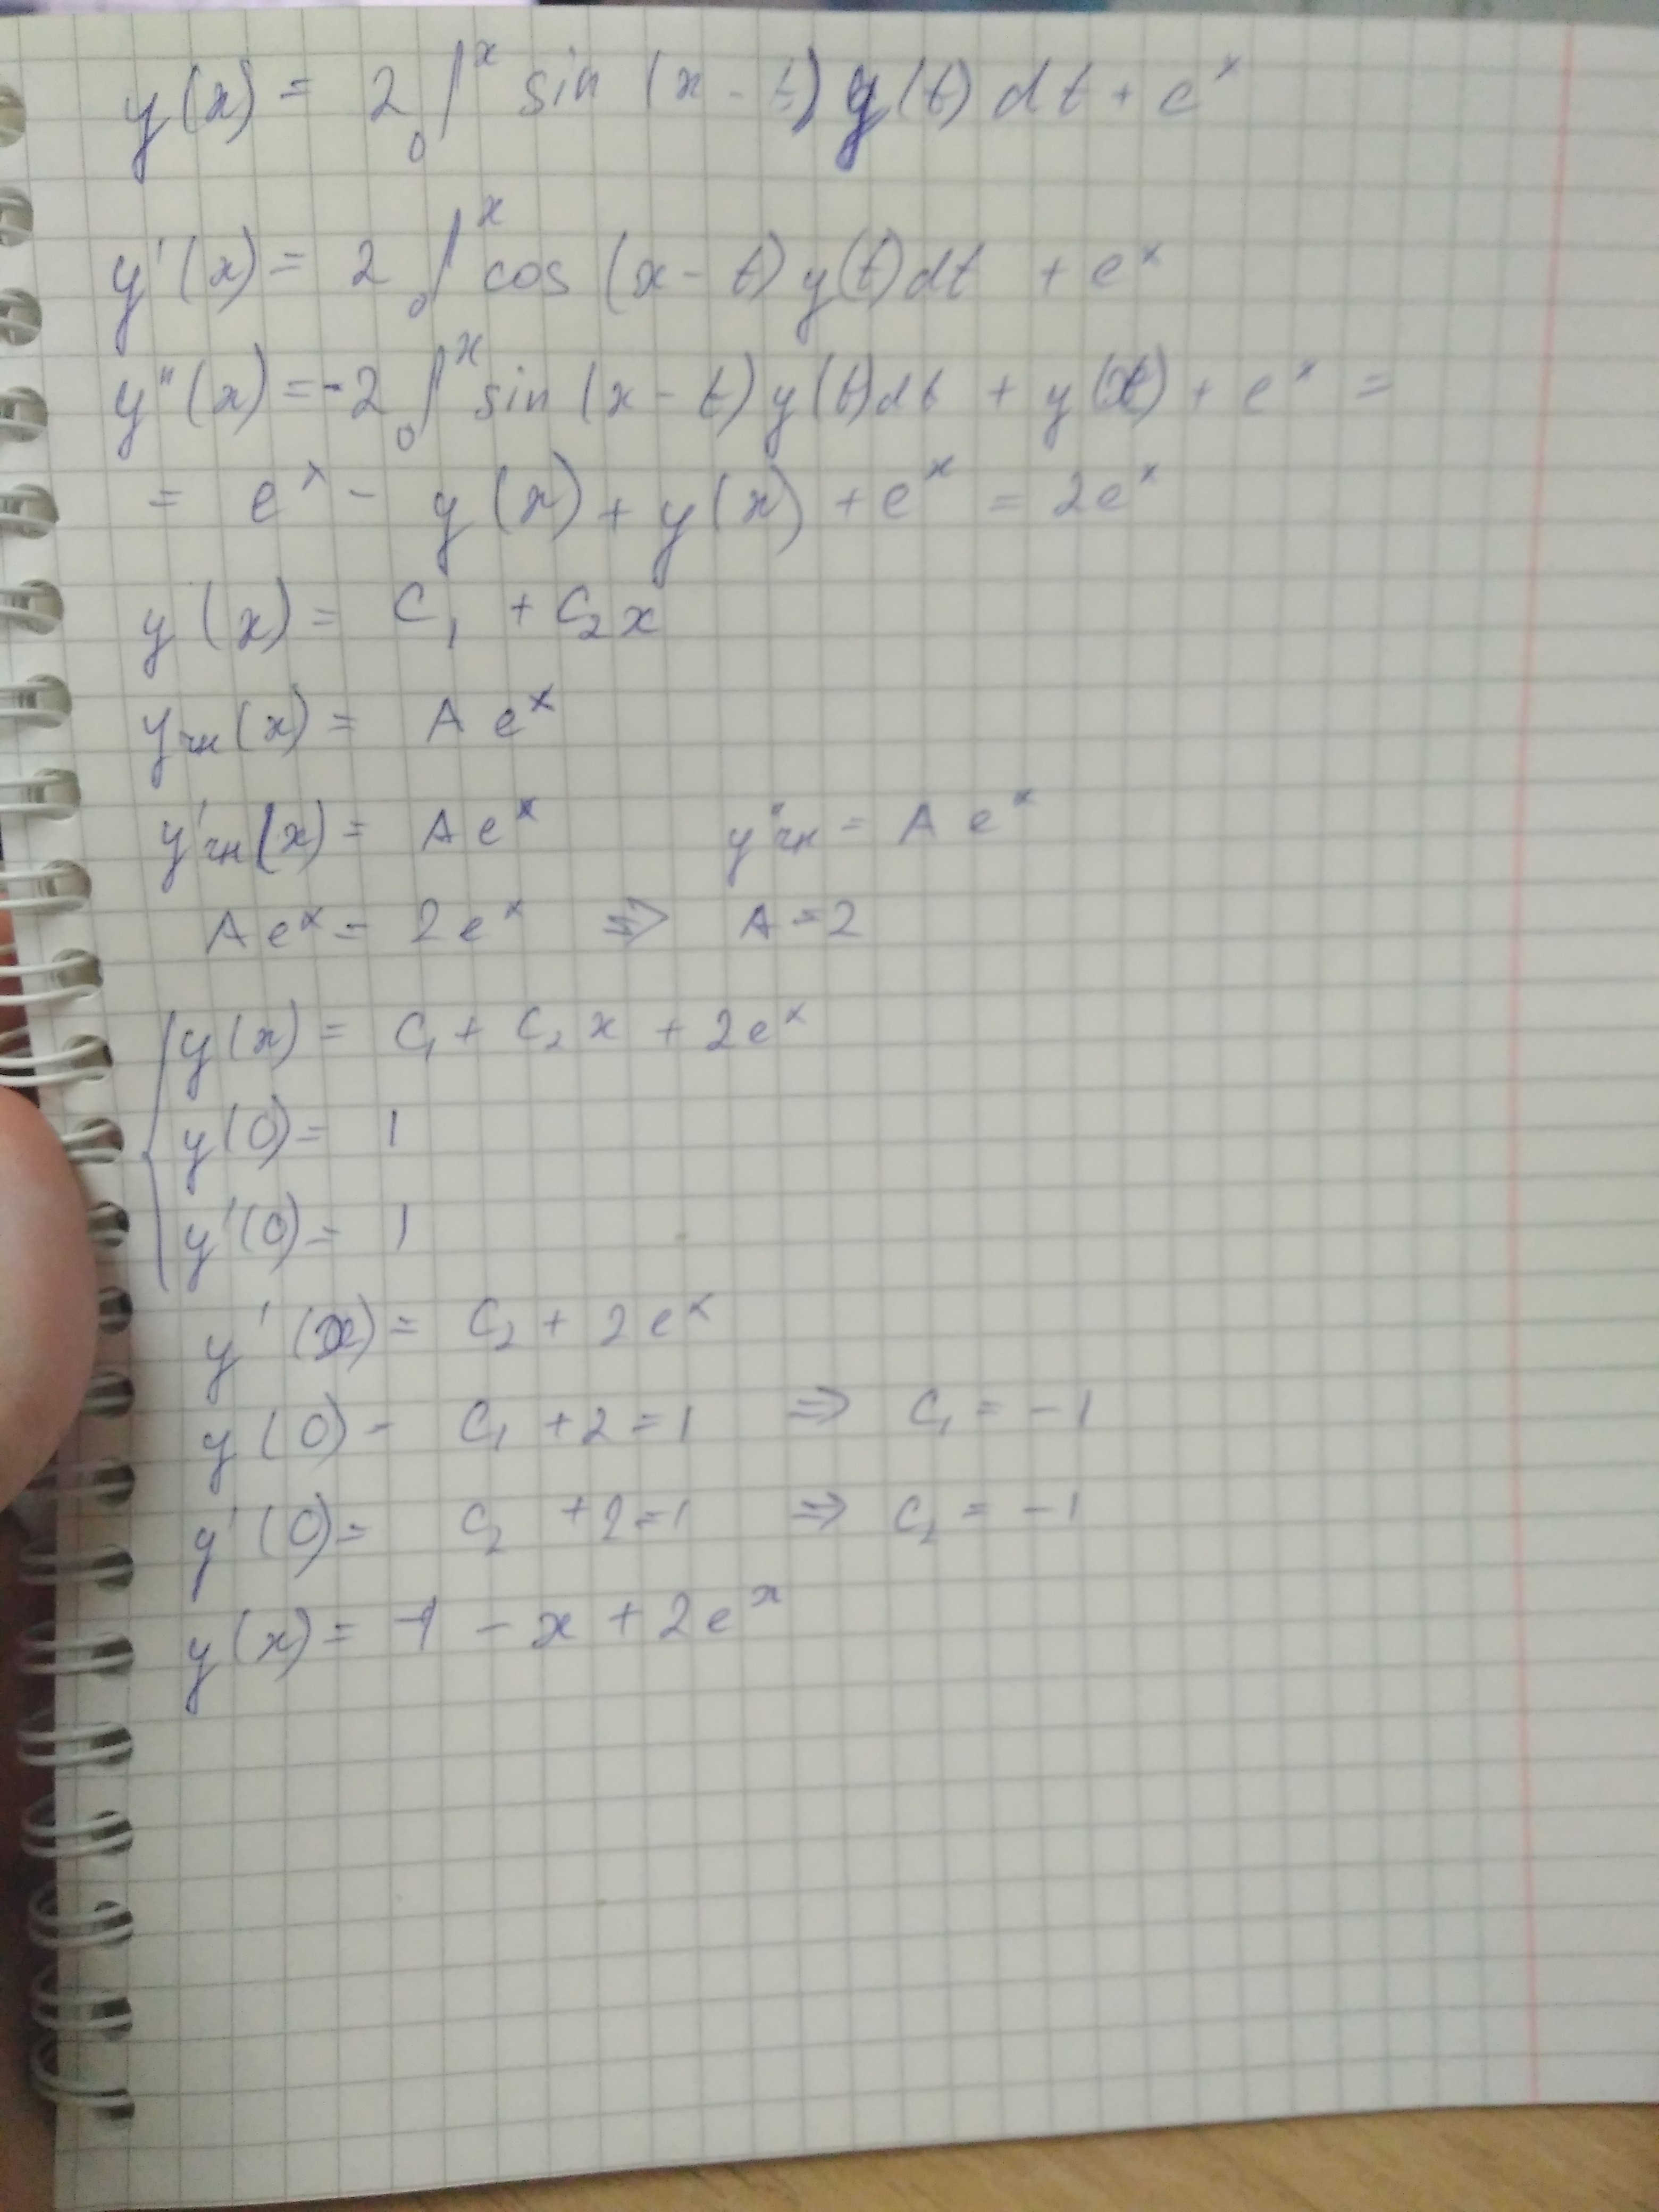 y(x) = 2 ₀∫ˣ sin (x - t) y(t) dt + eˣ
y'(x) = 2 ₀∫ˣ cos (x - t) y(t) dt + eˣ
y''(x) = -2 ₀∫ˣ sin (x - t) y(t) dt + y(x) + eˣ =
= eˣ - y(x) + y(x) + eˣ = 2eˣ
y(x) = C₁ + C₂x
yчн(x) = A eˣ
y'чн(x) = A eˣ y''чн = A eˣ
A eˣ = 2eˣ ⇒ A = 2
{ y(x) = C₁ + C₂ x + 2eˣ
y(0) = 1
y'(0) = 1
y'(x) = C₂ + 2eˣ
y(0) = C₁ + 2 = 1 ⇒ C₁ = -1
y'(0) = C₂ + 2 = 1 ⇒ C₂ = -1
y(x) = -1 - x + 2eˣ